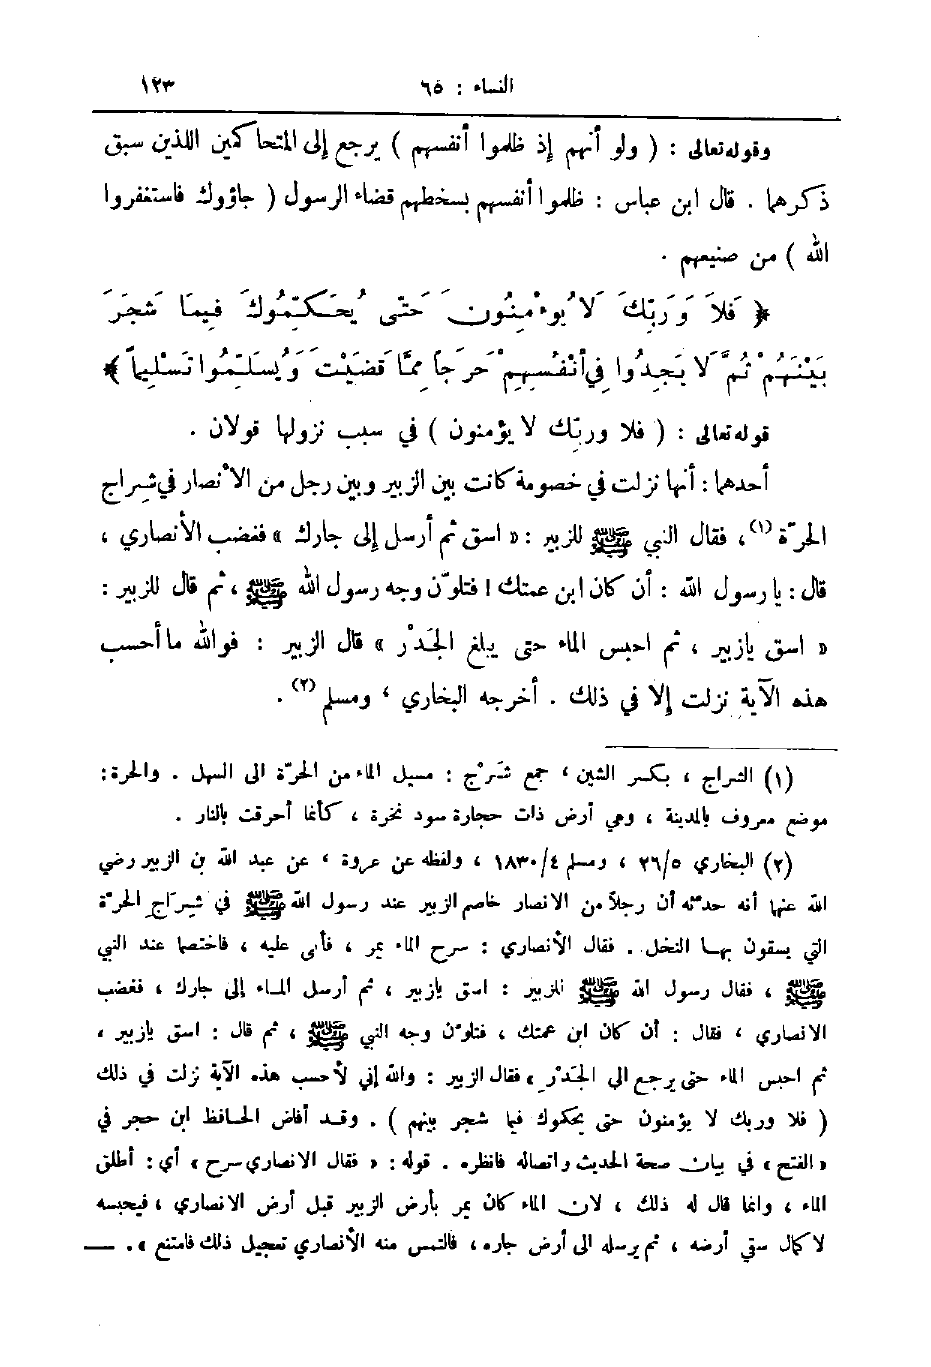 النساء : ٦٥ ١٢٣
وقوله تعالى : ( ولو أنهم إذ ظلموا أنفسهم ) يرجع إلى المتحاكمين اللذين سبق
ذكرهما . قال ابن عباس : ظلموا أنفسهم بسخطهم قضاء الرسول ( جاؤوك فاستغفروا
الله ) من صنيعهم .
﴿ فَلَا وَرَبِّكَ لَا يُؤْمِنُونَ حَتَّى يُحَكِّمُوكَ فِيمَا شَجَرَ
بَيْنَهُمْ ثُمَّ لَا يَجِدُوا فِي أَنْفُسِهِمْ حَرَجاً مِمَّا قَضَيْتَ وَيُسَلِّمُوا تَسْلِيماً ﴾
قوله تعالى : ( فلا وربّك لا يؤمنون ) في سبب نزولها قولان .
أحدهما : أنها نزلت في خصومة كانت بين الزبير وبين رجل من الأنصار في شِراج
الحرّة (١) ، فقال النبي ﷺ للزبير : « اسق ثم أرسل إلى جارك » فغضب الأنصاري ،
قال : يا رسول الله : أن كان ابن عمتك ! فتلوّن وجه رسول الله ﷺ ، ثم قال للزبير :
« اسق يازبير ، ثم احبس الماء حتى يبلغ الجَدْر » قال الزبير : فوالله ما أحسب
هذه الآية نزلت إلا في ذلك . أخرجه البخاري ، ومسلم (٢) .
(١) الشراج ، بكسر الشين ، جمع شَرْج : مسيل الماء من الحرّة الى السهل . والحرة :
موضع معروف بالمدينة ، وهي أرض ذات حجارة سود نخرة ، كأنما أحرقت بالنار .
(٢) البخاري ٢٦/٥ ، ومسلم ١٨٣٠/٤ ، ولفظه عن عروة ، عن عبد الله بن الزبير رضي
الله عنهما أنه حدثه أن رجلاً من الانصار خاصم الزبير عند رسول الله ﷺ في شِرَاج الحرّة
التي يسقون بها النخل . فقال الأنصاري : سرح الماء يمر ، فأبى عليه ، فاختصما عند النبي
ﷺ ، فقال رسول الله ﷺ للزبير : اسق يازبير ، ثم أرسل الماء إلى جارك ، فغضب
الانصاري ، فقال : أن كان ابن عمتك ، فتلوّن وجه النبي ﷺ ، ثم قال : اسق يازبير ،
ثم احبس الماء حتى يرجع الى الجَدْر » فقال الزبير : والله إني لأحسب هذه الآية نزلت في ذلك
( فلا وربك لا يؤمنون حتى يحكموك فيما شجر بينهم ) . وقد أفاض الحافظ ابن حجر في
« الفتح » في بيان صحة الحديث واتصاله فانظره . قوله : « فقال الانصاري سرح » أي : أطلق
الماء ، وانما قال له ذلك ، لان الماء كان يمر بأرض الزبير قبل أرض الانصاري ، فيحبسه
لاكمال سقي أرضه ، ثم يرسله الى أرض جاره ، فالتمس منه الأنصاري تعجيل ذلك فامتنع » . —